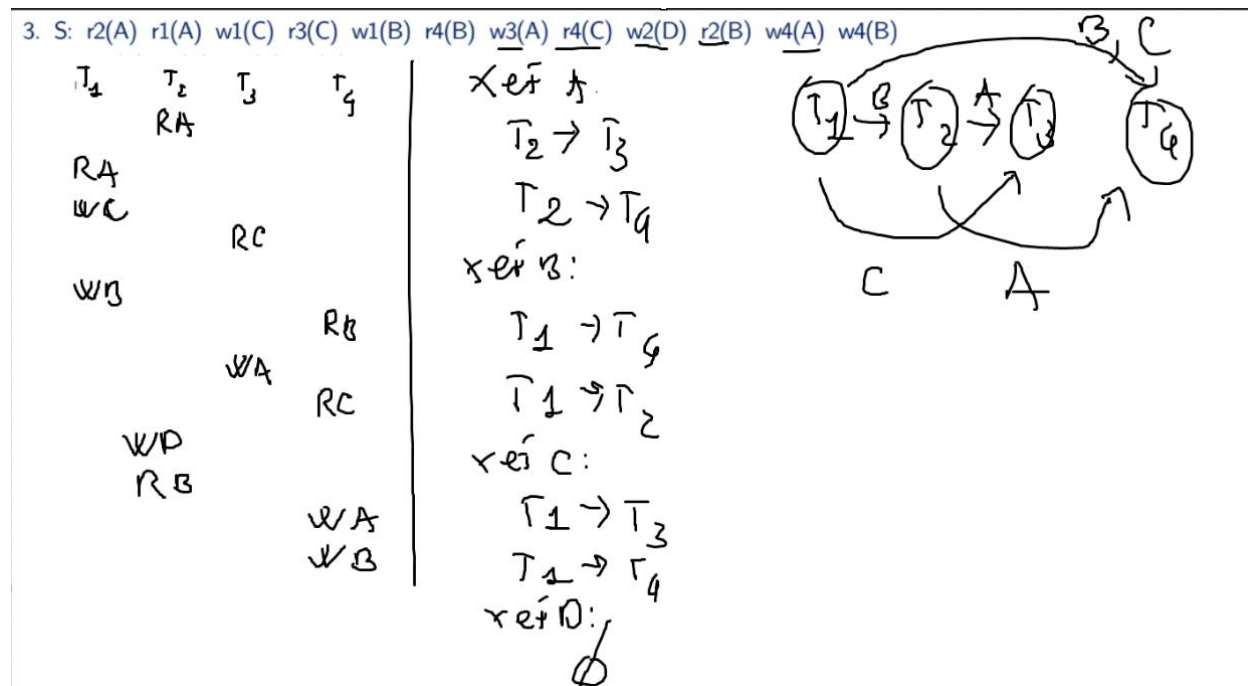 3. S: r2(A) r1(A) w1(C) r3(C) w1(B) r4(B) w3(A) r4(C) w2(D) r2(B) w4(A) w4(B)
T1 T2 T3 T4
RA
RA
WC
RC
WB
RB
WA
RC
WD
RB
WA
WB
xét A
T2 → T3
T2 → T4
xét B:
T1 → T4
T1 → T2
xét C:
T1 → T3
T1 → T4
xét D:
B, C
T1 B→ T2 A→ T3 T4
C A